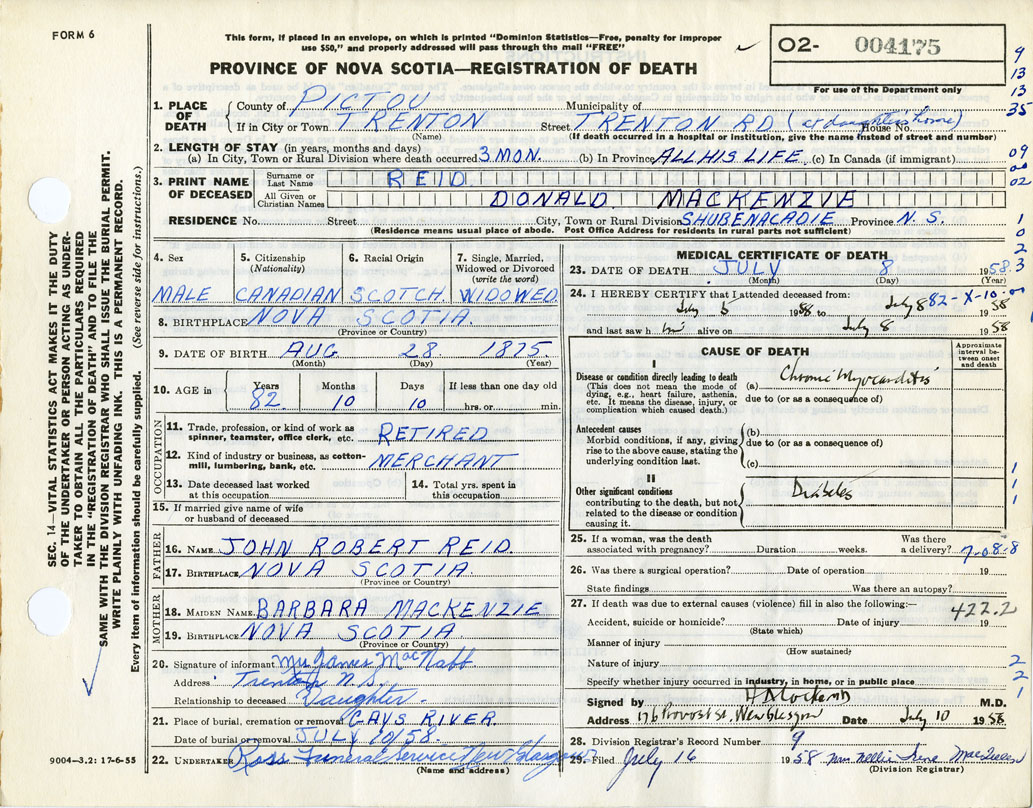 FORM 6
This form, if placed in an envelope, on which is printed "Dominion Statistics—Free, penalty for improper
use $50," and properly addressed will pass through the mail "FREE"
PROVINCE OF NOVA SCOTIA—REGISTRATION OF DEATH
02- 004175
For use of the Department only
9
13
13
35
09
02
1
0
2
3
1. PLACE OF DEATH County of PICTOU Municipality of
If in City or Town TRENTON Street TRENTON RD (at daughter's home) House No.
(Name) (If death occurred in a hospital or institution, give the name instead of street and number)
2. LENGTH OF STAY (in years, months and days)
(a) In City, Town or Rural Division where death occurred 3 MON. (b) In Province ALL HIS LIFE (c) In Canada (if immigrant)
3. PRINT NAME OF DECEASED Surname or Last Name REID
All Given or Christian Names DONALD MACKENZIE
RESIDENCE No. Street City, Town or Rural Division SHUBENACADIE Province N. S.
(Residence means usual place of abode. Post Office Address for residents in rural parts not sufficient)
4. Sex 5. Citizenship (Nationality) 6. Racial Origin 7. Single, Married, Widowed or Divorced (write the word)
MALE CANADIAN SCOTCH. WIDOWED
8. BIRTHPLACE NOVA SCOTIA
(Province or Country)
9. DATE OF BIRTH AUG 28 1875
(Month) (Day) (Year)
10. AGE in Years Months Days If less than one day old
82 10 10 hrs. or min.
OCCUPATION
11. Trade, profession, or kind of work as spinner, teamster, office clerk, etc. RETIRED
12. Kind of industry or business, as cotton-mill, lumbering, bank, etc. MERCHANT
13. Date deceased last worked at this occupation
14. Total yrs. spent in this occupation
15. If married give name of wife or husband of deceased
FATHER
16. NAME JOHN ROBERT REID.
17. BIRTHPLACE NOVA SCOTIA.
(Province or Country)
MOTHER
18. MAIDEN NAME BARBARA MACKENZIE
19. BIRTHPLACE NOVA SCOTIA
(Province or Country)
20. Signature of informant Mrs James MacNabb
Address Trenton N.S.
Relationship to deceased Daughter
21. Place of burial, cremation or removal GAYS RIVER
Date of burial or removal JULY 10/58.
22. UNDERTAKER Ross Funeral Service New Glasgow
(Name and address)
MEDICAL CERTIFICATE OF DEATH
23. DATE OF DEATH JULY 8 1958
(Month) (Day) (Year)
24. I HEREBY CERTIFY that I attended deceased from:
July 5 1958 to July 8 1958
82-X-10-
and last saw him alive on July 8 1958
CAUSE OF DEATH
Approximate interval between onset and death
I
Disease or condition directly leading to death
(This does not mean the mode of dying, e.g., heart failure, asthenia, etc. It means the disease, injury, or complication which caused death.)
(a) Chronic Myocarditis
due to (or as a consequence of)
Antecedent causes
Morbid conditions, if any, giving rise to the above cause, stating the underlying condition last.
(b)
due to (or as a consequence of)
(c)
II
Other significant conditions
contributing to the death, but not related to the disease or condition causing it.
Diabetes
1
1
1
25. If a woman, was the death associated with pregnancy? Duration weeks. Was there a delivery?
7-08-8
26. Was there a surgical operation? Date of operation 19
State findings Was there an autopsy?
27. If death was due to external causes (violence) fill in also the following:—
422.2
Accident, suicide or homicide? Date of injury 19
(State which)
Manner of injury
(How sustained)
Nature of injury
Specify whether injury occurred in industry, in home, or in public place
2
2
1
Signed by M.D.
Address 176 Provost St, New Glasgow Date July 10 1958
28. Division Registrar's Record Number 9
29. Filed July 16 1958 Mrs Nellie Irene
(Division Registrar)
9004—3.2: 17-6-55
SEC. 14—VITAL STATISTICS ACT MAKES IT THE DUTY
OF THE UNDERTAKER OR PERSON ACTING AS UNDER-
TAKER TO OBTAIN ALL THE PARTICULARS REQUIRED
IN THE "REGISTRATION OF DEATH" AND TO FILE THE
SAME WITH THE DIVISION REGISTRAR WHO SHALL ISSUE THE BURIAL PERMIT.
WRITE PLAINLY WITH UNFADING INK. THIS IS A PERMANENT RECORD.
Every item of information should be carefully supplied. (See reverse side for instructions.)